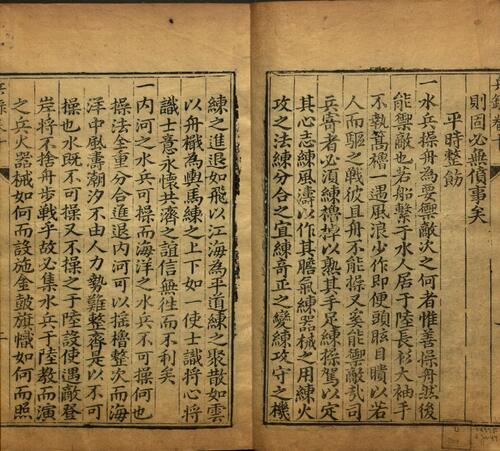 則固必無僨事矣
平時整飭
一水兵操舟為要禦敵次之何者惟善操舟然後
能禦敵也若船繫于水人居于陸長衫大袖手
不執篙櫓一遇風浪少作即便頭眩目瞶以若
人而驅之戰彼且舟不能操又奚能禦敵哉司
兵寄者必須練櫓掉以熟其手足練操駕以定
其心志練風濤以作其膽氣練器械之用練火
攻之法練分合之宜練奇正之變練攻守之機
練之進退如飛以江海為平道練之聚散如雲
以舟檝為輿馬練之上下如一使士識將心將
識士意永懷共濟之誼信無往而不利矣
一內河之水兵可操而海洋之水兵不可操何也
操法全重分合進退內河可以搖櫓整次而海
洋中風濤潮汐不由人力勢難整齊是以不可
操也水既不可操又不操之于陸設使遇敵登
岸將不捨舟步戰乎故必集水兵于陸教而演
之兵火器械如何而設施金鼓旗幟如何而照
二